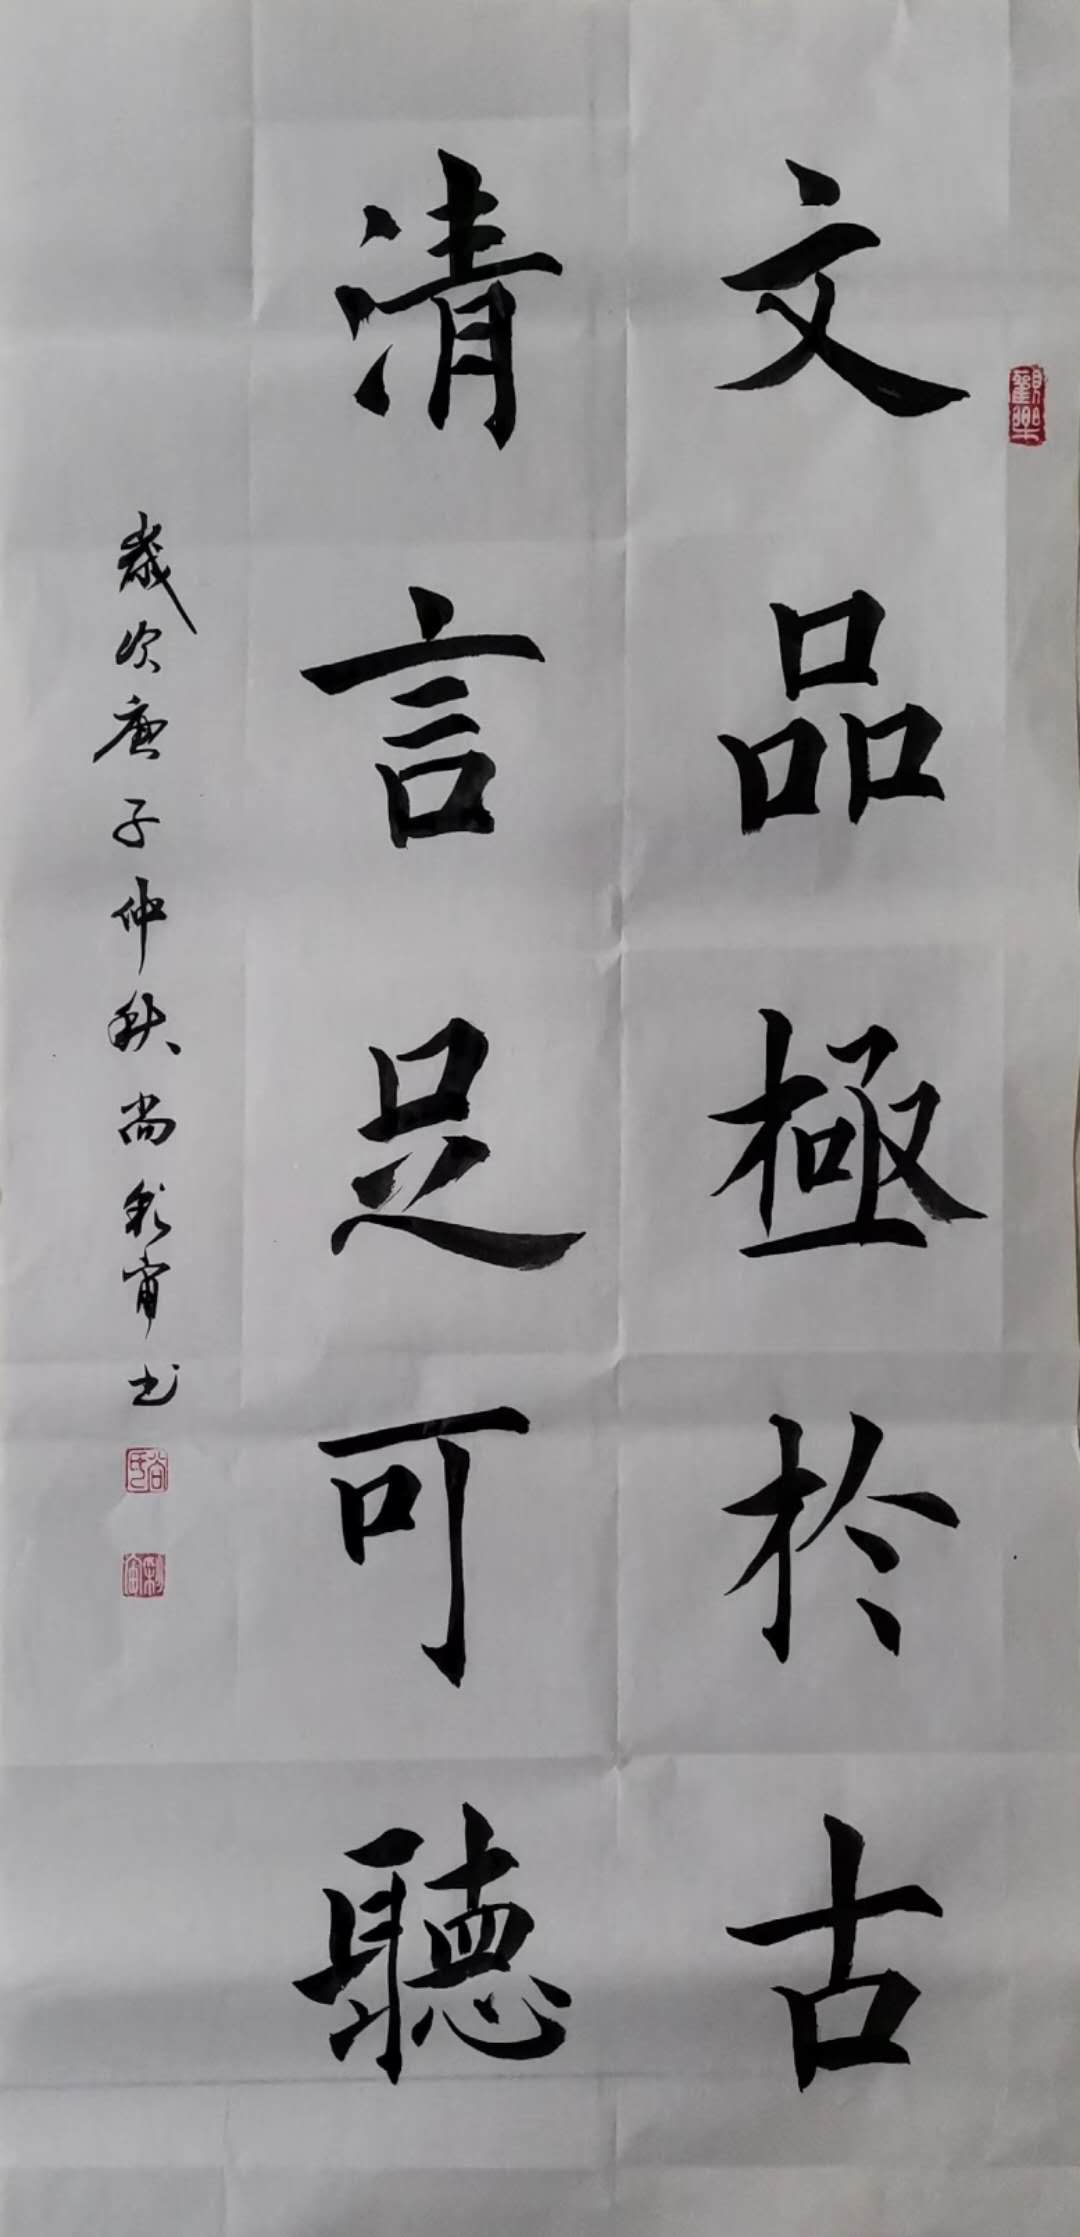 文品極於古
清言足可聽
歲次庚子仲秋尚彩宵书